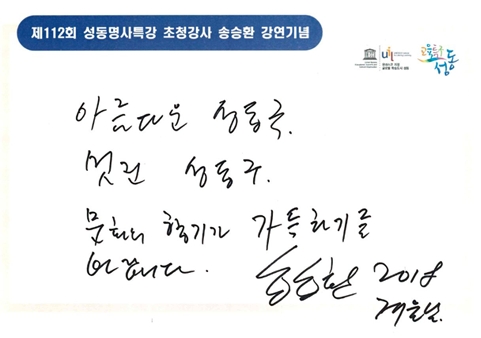 제112회 성동명사특강 초청강사 송승환 강연기념
교육특구
성동
아름다운 성동구.
멋진 성동구.
문화의 향기가 가득하기를
바랍니다.
송승환 2018
겨울날.